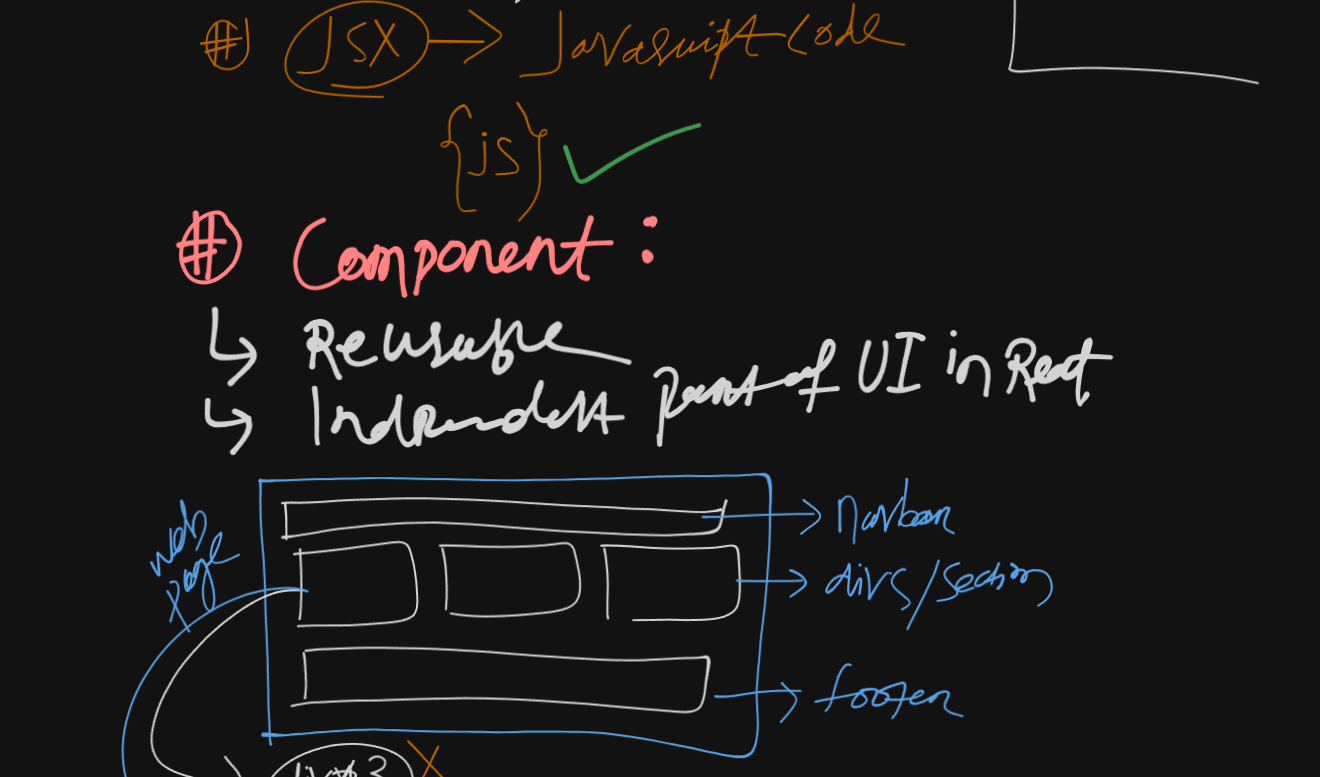 # JSX → Javascript code
{js} ✓
# Component :
↳ Reusable
↳ Independent part of UI in React
web page
→ navbar
→ divs/section
→ footer